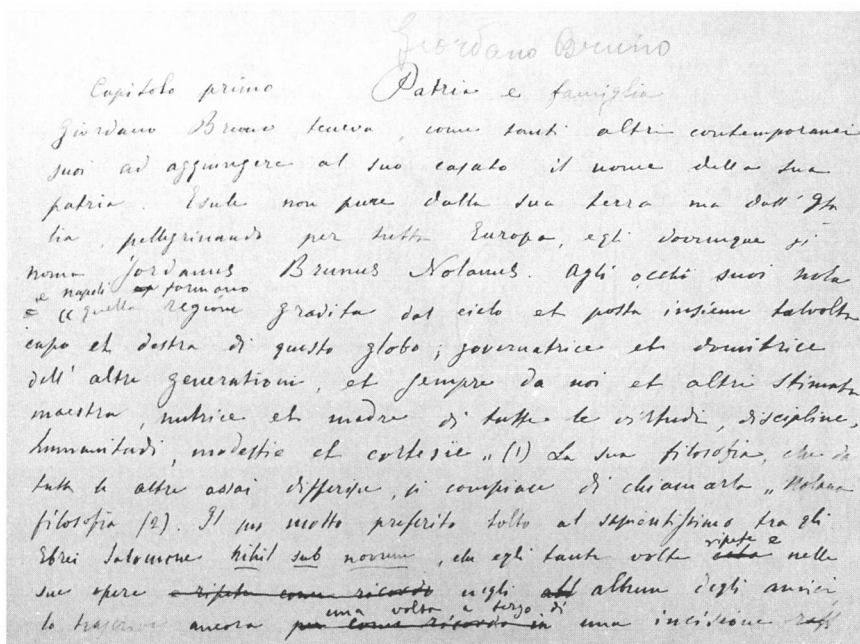 Giordano Bruno
Capitolo primo Patria e famiglia
Giordano Bruno teneva, come tanti altri contemporanei
suoi ad aggiungere al suo casato il nome della sua
patria. Esule non pure dalla sua terra ma dall'Ita
lia, pellegrinando per tutta Europa, egli dovunque si
noma Jordanus Brunus Nolanus. Agli occhi suoi Nola
e napoli formano
"quella regione gradita dal cielo et posta insieme talvolta
capo et destra di questo globo; governatrice et domitrice
dell'altre generationi, et sempre da noi et altri stimata
maestra, nutrice et madre di tutte le virtudi, discipline,
humanitadi, modestie et cortesie" (1) La sua filosofia, che da
tutte le altre assai differisce, si compiace di chiamarla "Nolana
filosofia (2). Il suo motto preferito tolto al sapientissimo tra gli
ripete e
Ebrei Salomone nihil sub novum, che egli tante volte cita nelle
sue opere e ripete come ricordo negli album degli amici
una volta a tergo di
lo ancora per come ricordo in una incisione